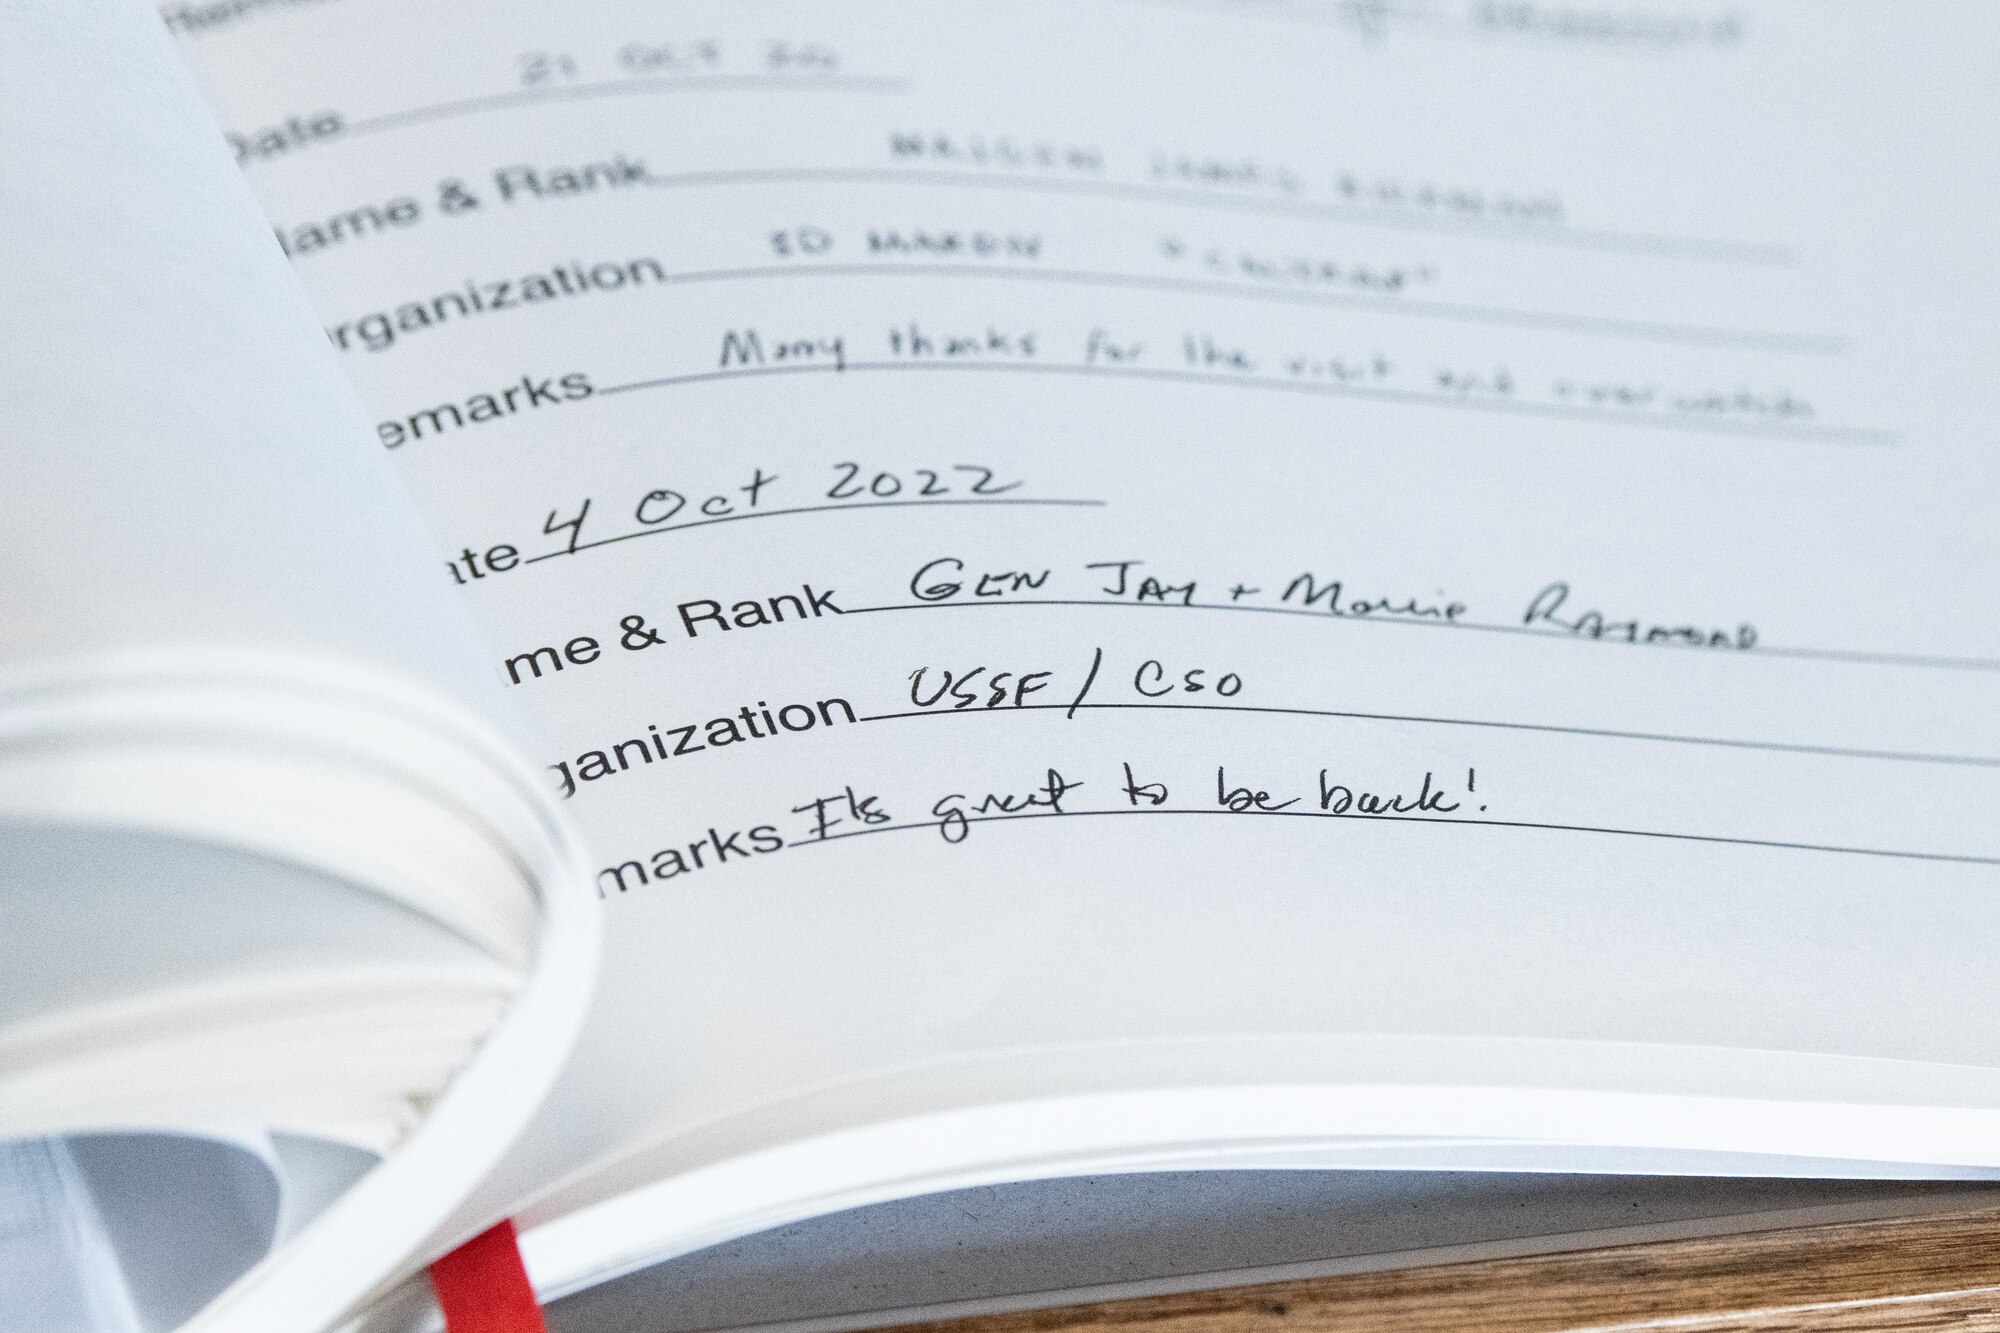 21 OCT 20
Date
ame & Rank MAJGEN
rganization
emarks Many thanks for the visit and
te 4 Oct 2022
me & Rank GEN JAY + Mollie RAYMOND
ganization USSF / CSO
marks It's great to be back!